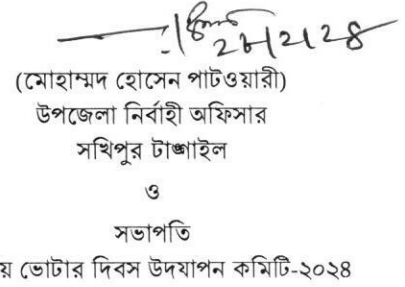 ২৮/২/২৪
(মোহাম্মদ হোসেন পাটওয়ারী)
উপজেলা নির্বাহী অফিসার
সখিপুর টাঙ্গাইল
ও
সভাপতি
য় ভোটার দিবস উদযাপন কমিটি-২০২৪